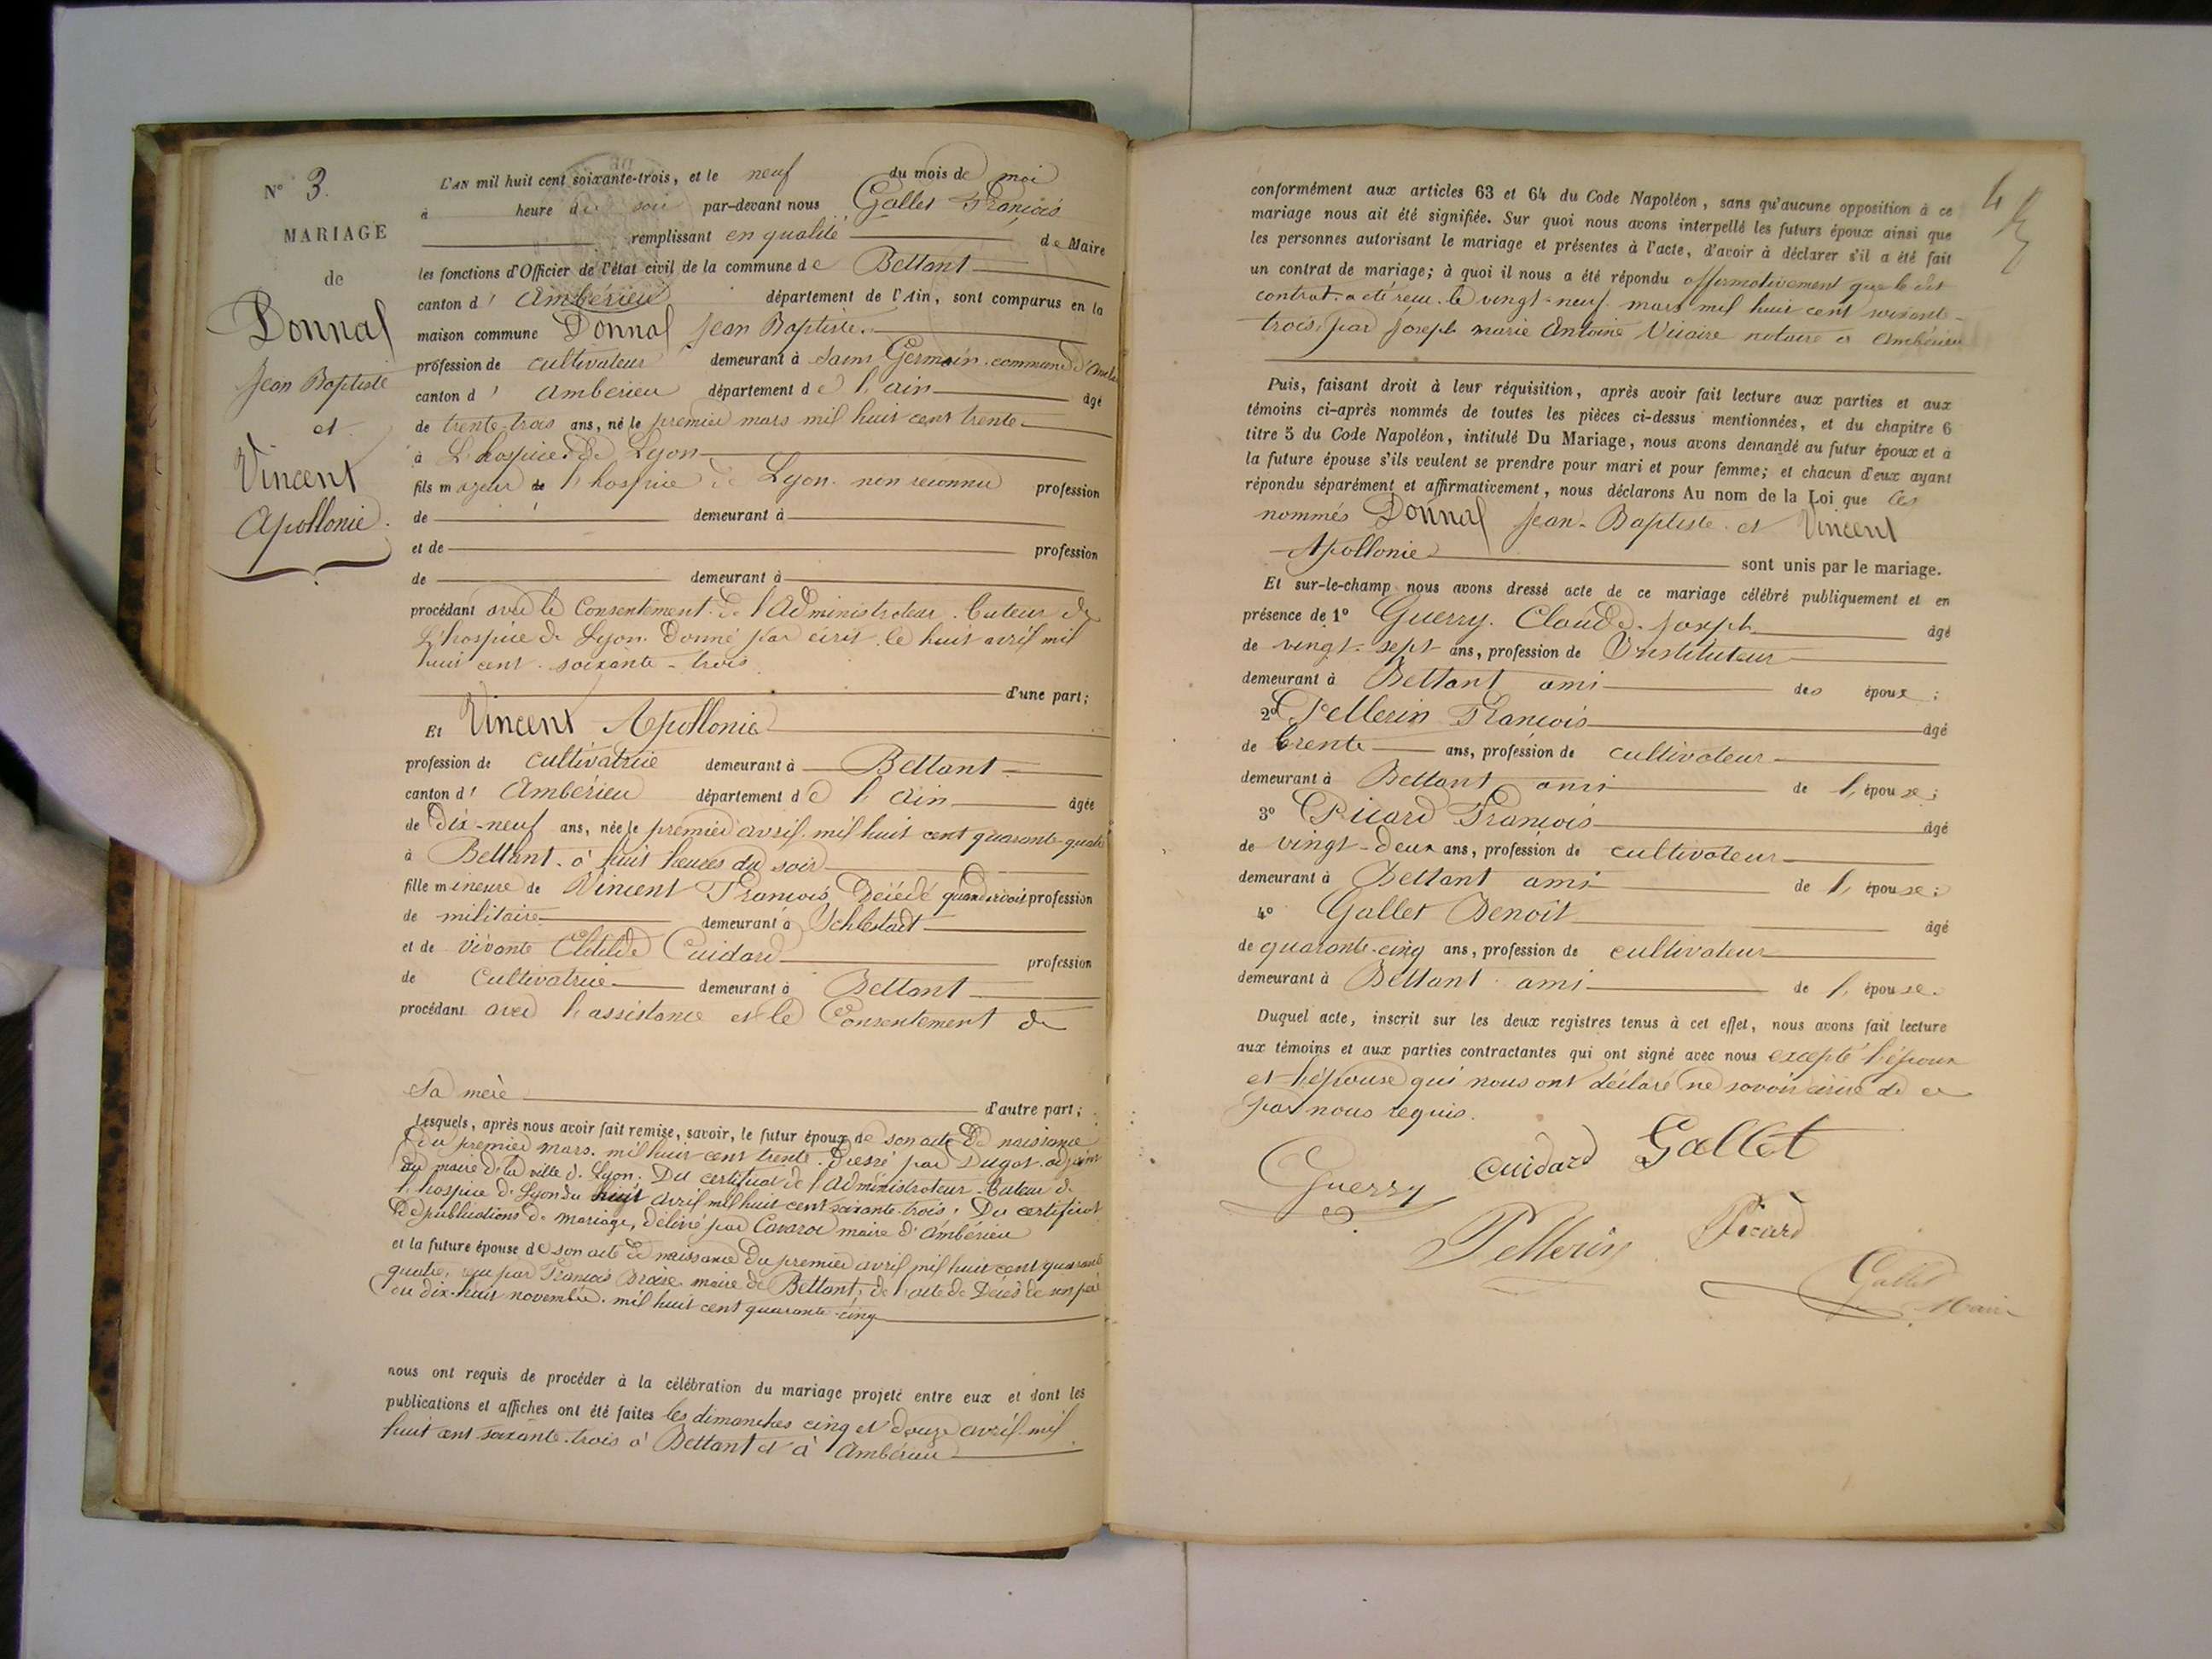 N° 3.
MARIAGE
de
Donnal
Jean Baptiste
et
Vincent
Apollonie
L'AN mil huit cent soixante-trois, et le neuf du mois de mai
à heure du soir par-devant nous Gallet François
remplissant en qualité de Maire
les fonctions d'Officier de l'état civil de la commune de Bettant
canton d' Ambérieu département de l'Ain, sont comparus en la
maison commune Donnal Jean Baptiste.
profession de cultivateur demeurant à Saint Germain commune
canton d' Amberieu département de l'ain âgé
de trente-trois ans, né le premier mars mil huit cent trente
à L'hospice de Lyon
fils majeur de l'hospice de Lyon non reconnu profession
de demeurant à
et de profession
de demeurant à
procédant avec le Consentement de l'Administrateur tuteur de
L'hospice de Lyon Donné par écrit le huit avril mil
huit cent soixante-trois
d'une part;
Et Vincent Apollonie
profession de cultivatrice demeurant à Bettant
canton d' Ambérieu département de l'Ain âgée
de dix-neuf ans, née le premier avril mil huit cent quarante-quatre
à Bettant à huit heures du soir
fille mineure de Vincent François Décédé quand vivait profession
de militaire demeurant à Schlestadt
et de vivante Clotilde Cuidard profession
de Cultivatrice demeurant à Bettant
procédant avec l'assistance et le Consentement de
Sa mère d'autre part;
Lesquels, après nous avoir fait remise, savoir, le futur époux de son acte de naissance
du premier mars mil huit cent trente Dressé par Dugat adjoint
du maire de la ville de Lyon. Du certificat de l'Administrateur tuteur de
l'hospice de Lyon du huit avril mil huit cent soixante-trois. Du certificat
de publications de mariage, délivré par maire d'Ambérieu
et la future épouse de son acte de naissance Du premier avril mil huit cent quarante
quatre, reçu par François maire de Bettant; de l'acte de Décès de son père
du dix-huit novembre mil huit cent quarante-cinq
nous ont requis de procéder à la célébration du mariage projeté entre eux et dont les
publications et affiches ont été faites les dimanches cinq et douze avril mil
huit cent soixante-trois à Bettant et à Ambérieu
4
conformément aux articles 63 et 64 du Code Napoléon, sans qu'aucune opposition à ce
mariage nous ait été signifiée. Sur quoi nous avons interpellé les futurs époux ainsi que
les personnes autorisant le mariage et présentes à l'acte, d'avoir à déclarer s'il a été fait
un contrat de mariage; à quoi il nous a été répondu affirmativement que le dit
contrat a été reçu le vingt-neuf mars mil huit cent soixante-
trois par Joseph marie Antoine notaire à Ambérieu
Puis, faisant droit à leur réquisition, après avoir fait lecture aux parties et aux
témoins ci-après nommés de toutes les pièces ci-dessus mentionnées, et du chapitre 6
titre 5 du Code Napoléon, intitulé Du Mariage, nous avons demandé au futur époux et à
la future épouse s'ils veulent se prendre pour mari et pour femme; et chacun d'eux ayant
répondu séparément et affirmativement, nous déclarons Au nom de la Loi que les
nommés Donnal Jean-Baptiste et Vincent
Apollonie sont unis par le mariage.
Et sur-le-champ nous avons dressé acte de ce mariage célébré publiquement et en
présence de 1° Guerry Claude Joseph âgé
de vingt-sept ans, profession de Instituteur
demeurant à Bettant ami des époux;
2° Pellerin François âgé
de trente ans, profession de cultivateur
demeurant à Bettant ami de l'épouse;
3° Picard François âgé
de vingt-deux ans, profession de cultivateur
demeurant à Bettant ami de l'épouse;
4° Gallet Benoît âgé
de quarante-cinq ans, profession de cultivateur
demeurant à Bettant ami de l'épouse.
Duquel acte, inscrit sur les deux registres tenus à cet effet, nous avons fait lecture
aux témoins et aux parties contractantes qui ont signé avec nous excepté l'époux
et l'épouse qui nous ont déclaré ne savoir écrire de ce
par nous requis.
Guerry Cuidard Gallet
Pellerin Picard
Gallet
Maire